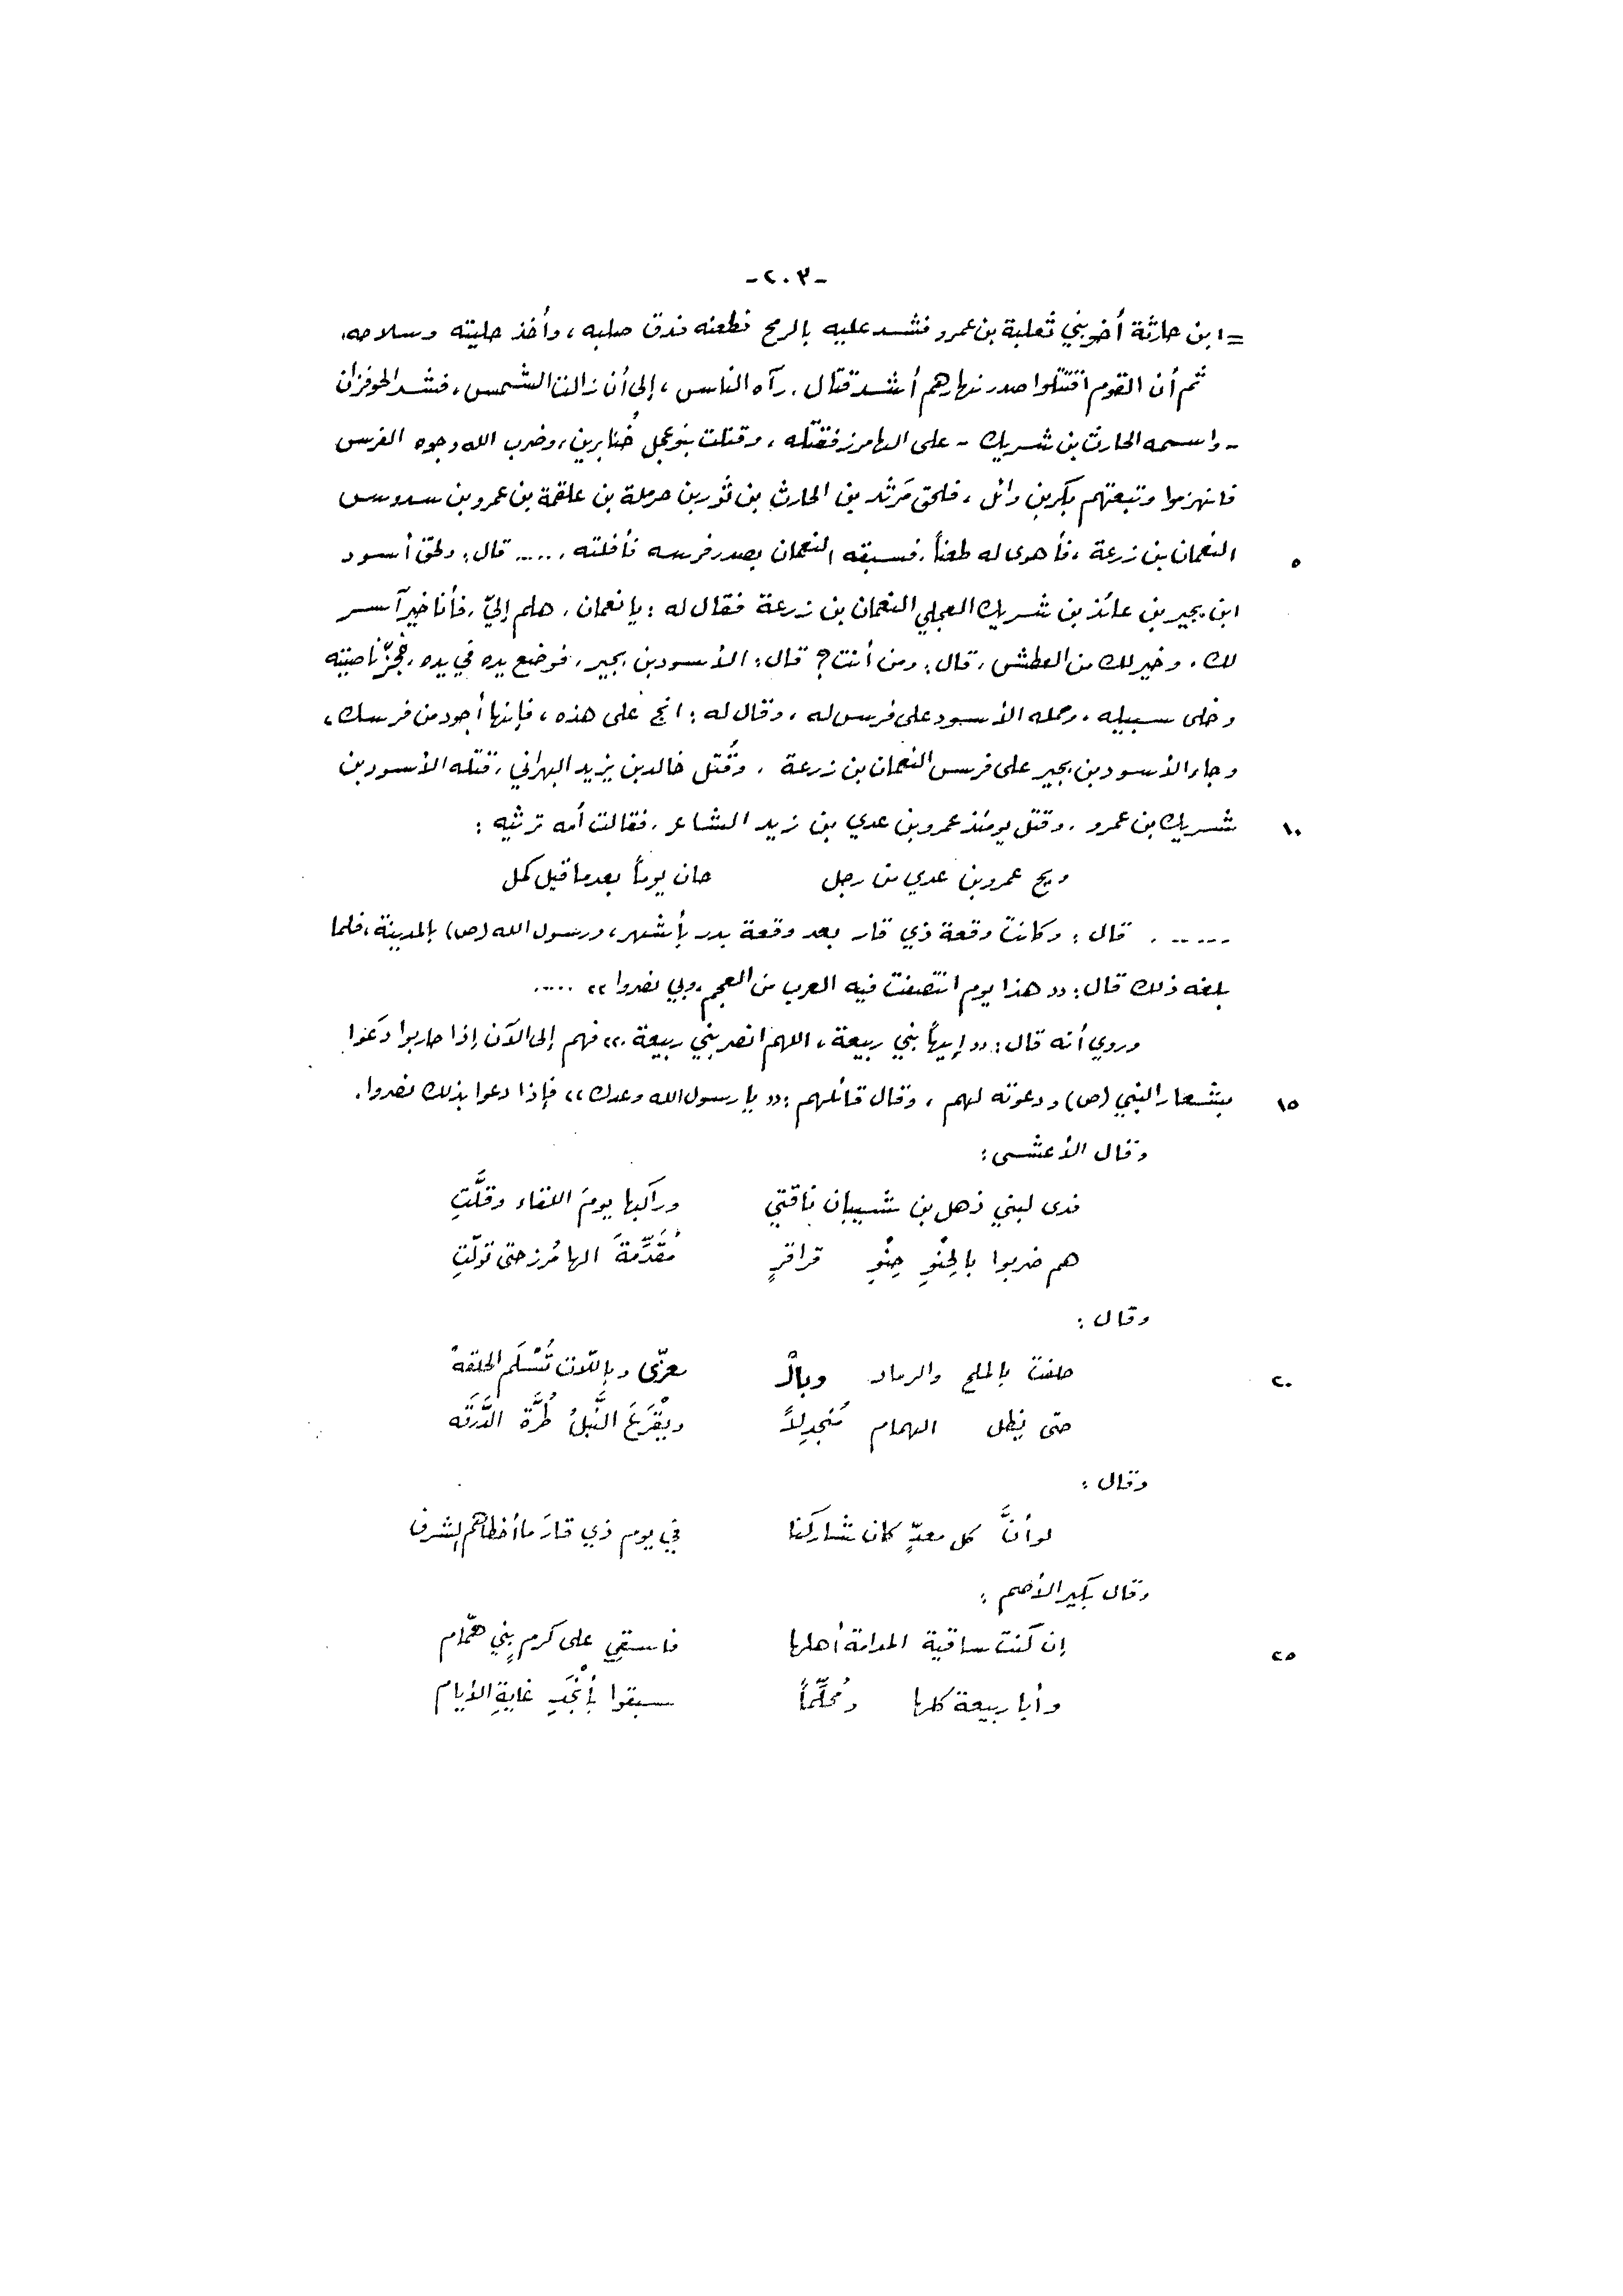 -٢٠٣-
= ابن حارثة أخو بني ثعلبة بن عمرو فشد عليه بالرمح فطعنه فدق صلبه ، وأخذ حليته وسلاحه .
ثم أن القوم اقتتلوا صدر نهارهم أشد قتال . رآه الناس ، إلى أن زالت الشمس ، فشد الحوفزان
- واسمه الحارث بن شريك - على الهامرز فقتله ، وقتلت بنو عجل خُنابرين ، وضرب الله وجوه الفرس
فانهزموا وتبعتهم بكر بن وائل ، فلحق مَرثد بن الحارث بن ثور بن حرملة بن علقمة بن عمرو بن سدوس
٥ النعمان بن زرعة ، فأهوى له طعناً . فسبقه النعمان بصدر فرسه فأفلته ...... قال : ولحق أسود
ابن بجير بن عائذ بن شريك العجلي النعمان بن زرعة فقال له : يا نعمان . هلم إليّ . فأنا خير آسر
لك . وخير لك من العطش . قال : ومن أنت ؟ قال : الأسود بن بجير . فوضع يده في يده . فجزّ ناصيته
وخلى سبيله ، وحمله الأسود على فرس له ، وقال له : انج على هذه ، فإنها أجود من فرسك ،
وجاء الأسود بن بجير على فرس النعمان بن زرعة . وقُتل خالد بن يزيد البهراني . قتله الأسود بن
١٠ شريك بن عمرو . وقتل يومئذ عمرو بن عدي بن زيد الشاعر . فقالت أمه ترثيه :
ويح عمرو بن عدي من رجل حان يوماً بعدما قيل كمل
...... قال : وكانت وقعة ذي قار بعد وقعة بدر بأشهر ، ورسول الله (ص) بالمدينة ، فلما
بلغه ذلك قال : (( هذا يوم انتصفت فيه العرب من العجم ، وبي نصروا )) ......
وروي أنه قال : (( إيهاً بني ربيعة ، اللهم انصر بني ربيعة . )) فهم إلى الآن إذا حاربوا دَعَوا
١٥ بشعار النبي (ص) ودعوته لهم ، وقال قائلهم : (( يا رسول الله وعدك )) فإذا دعوا بذلك نصروا .
وقال الأعشى :
فدى لبني ذهل بن شيبان ناقتي وراكبها يومَ اللقاء وقلَّتِ
هم ضربوا بالحِنْوِ حِنْوِ قراقرٍ مُقَدِّمةَ الهامُرز حتى تولّتِ
وقال :
٢٠ حلفت بالملح والرماد وبالْـ ـعزّى وباللات تُسْلَم الحلقهْ
حتى يظل الهمام مُنجدِلاً ويَقْرَعَ النَّبلُ طُرَّةَ الدَّرَقَه
وقال :
لو أنَّ كل معدٍّ كان شاركنا في يوم ذي قارَ ما أخطاهم الشرف
وقال بكير الأصم :
٢٥ إن كنت ساقية المدامة أهلها فاسقي على كرم بني همّام
وأبا ربيعة كلها ومُحلِّماً سبقوا بأنْجَدِ غايةِ الأيام